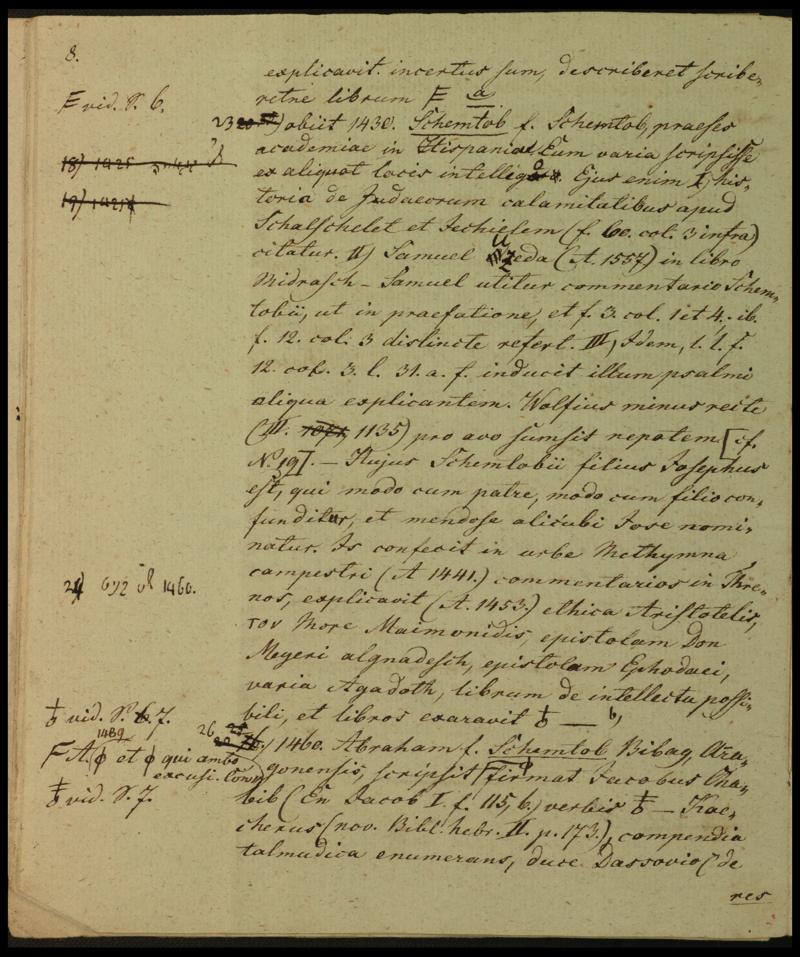 8.
explicavit. incertus sum, describeret scribe-
retne librum F a
F vid. S. 6.
23) obiit 1430. Schemtob f. Schemtob, praeses
academiae in Hispania. Cum varia scripsisse
18) 1425
ex aliquot locis intelligo. Ejus enim I) his-
19)
toria de Judaeorum calamitatibus apud
Schalschelet et Jechielem (f. 60. col. 3 infra)
citatur. II) Samuel Uzeda (A. 1557) in libro
Midrasch - Samuel utitur commentario Schem-
tobii, ut in praefatione, et f. 3. col. 1 et 4. ib.
f. 12. col. 3 distincte refert. III) Idem, l. l. f.
12. col. 3. l. 31. a. f. inducit illum psalmi
aliqua explicantem. Wolfius minus recte
(III. 1135) pro avo sumsit nepotem [cf.
N. 19]. — Hujus Schemtobii filius Josephus
est, qui modo cum patre, modo cum filio con-
funditur, et mendose alicubi Jose nomi-
natur. Is confecit in urbe Methymna
campestri (A 1441.) commentarios in Thre-
24) 1460.
nos, explicavit (A. 1453.) ethica Aristotelis,
τον More Maimonidis, epistolam Don
Meyeri algnadesch, epistolam Ephodaei,
varia Agadoth, librum de intellectu possi-
bili, et libros exaravit ŧ — b)
ŧ vid. S. 7.
26) 1460. Abraham f. Schemtob Bibag, Ara-
F A. 1489 ϕ et ϕ qui ambo
excusi.
gonensis, scripsit [firmat Jacobus Cha-
ŧ vid. S. 7.
bib (En Jacob I. f. 115, b.) verbis ŧ — Koe-
cherus (nov. Bibl. hebr. II. p. 173.), compendia
talmudica enumerans, duce Dassovio (de
res